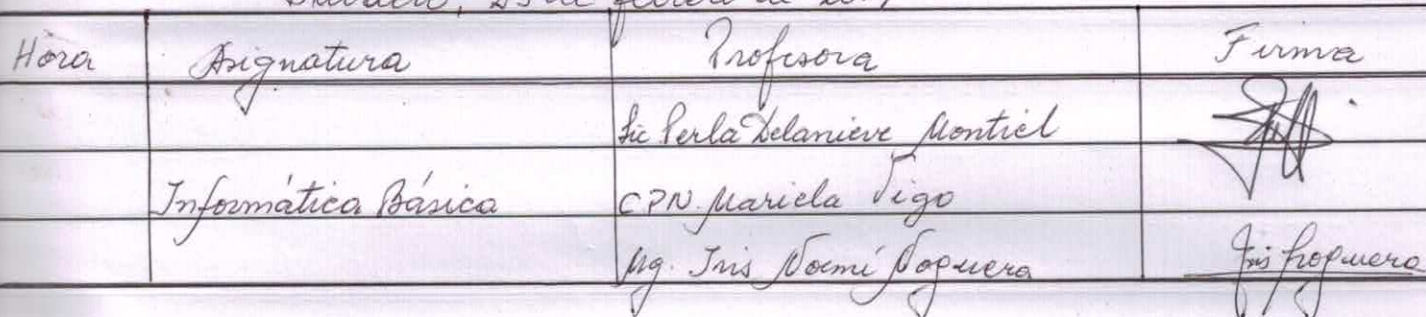 de febrero de
Hora Asignatura Profesora Firma
Lic. Perla Delanieve Montiel
Informática Básica CPN. Mariela Vigo
Mg. Iris Noemí Noguera Iris Noguera